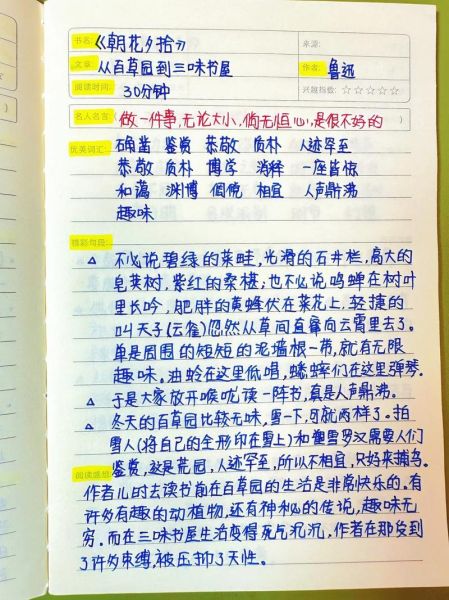 书名:《朝花夕拾》 来源:
文章: 从百草园到三味书屋 作者: 鲁迅
阅读时间: 30分钟 兴趣指数: ☆☆☆☆☆
名人名言( 做一件事,无论大小,倘无恒心,是很不好的 )
优美词汇: 确凿 鉴赏 恭敬 质朴 人迹罕至
恭敬 质朴 博学 消释 一座皆惊
和蔼 渊博 倜傥 相宜 人声鼎沸
趣味
精彩句段:
△ 不必说碧绿的菜畦,光滑的石井栏,高大的
皂荚树,紫红的桑椹;也不必说鸣蝉在树叶
里长吟,肥胖的黄蜂伏在菜花上,轻捷的
叫天子(云雀)忽然从草间直窜向云霄里去了。
单是周围的短短的泥墙根一带,就有无限
趣味。油蛉在这里低唱,蟋蟀们在这里弹琴。
△ 于是大家放开喉咙读一阵书,真是人声鼎沸。
△ 冬天的百草园比较无味,雪一下,可就两样了。拍
雪人(将自己的全形印在雪上)和塑雪罗汉需要人们
鉴赏,这是荒园,人迹罕至,所以不相宜,只好来捕鸟。
阅读感想:
作者儿时去读书前在百草园的生活是非常快乐的。有
许多有趣的动植物,还有神秘的传说,趣味无
穷。而在三味书屋生活变得死气沉沉,作者在那受到
了许多束缚,被压抑了天性。